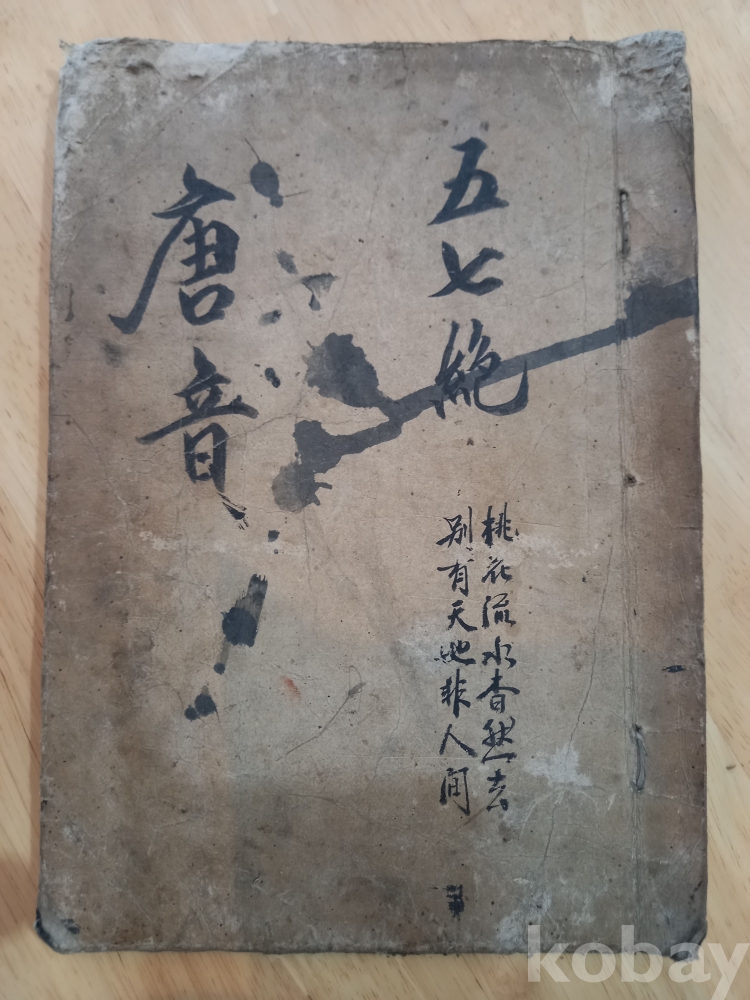 五七絶
桃花流水杳然去
別有天地非人間
唐音
kobay